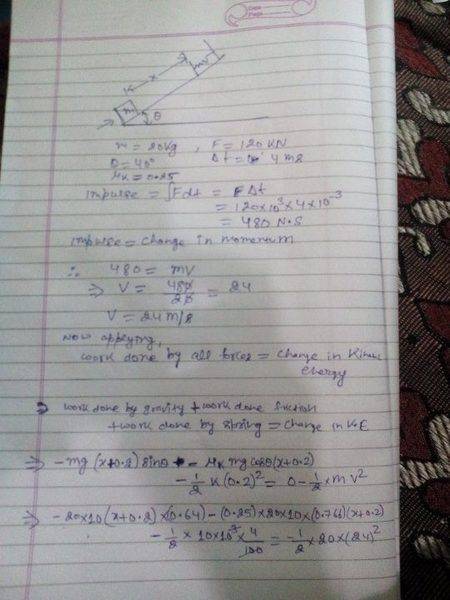 x
m
m
θ
m = 20kg, F = 120 KN
θ = 40° Δt = 4 ms
μk = 0.25
impulse = ∫Fdt = FΔt
= 120×10³×4×10⁻³
= 480 N·S
impulse = change in momentum
∴ 480 = mv
⇒ V = 480/20 = 24
V = 24 m/s
Now applying,
work done by all forces = change in Kinetic
Energy
⇒ work done by gravity + work done friction
+ work done by spring = change in K.E
⇒ -mg(x+0.2) sinθ - μk mg cosθ (x+0.2)
- 1/2 K(0.2)² = 0 - 1/2 × m v²
⇒ -20×10(x+0.2)×(0.64) - (0.25)×20×10×(0.766)(x+0.2)
- 1/2 × 10×10³ × 4/100 = -1/2 × 20×(24)²